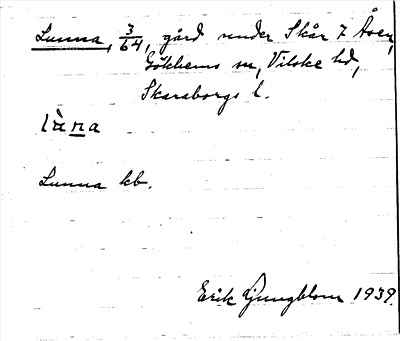 Lunna, 3/64, gård under Skår 7 Åsen,
Gökhems sn, Vilske hd,
Skaraborgs l.
lùna
Lunna kb.
Erik Ljungblom 1939.